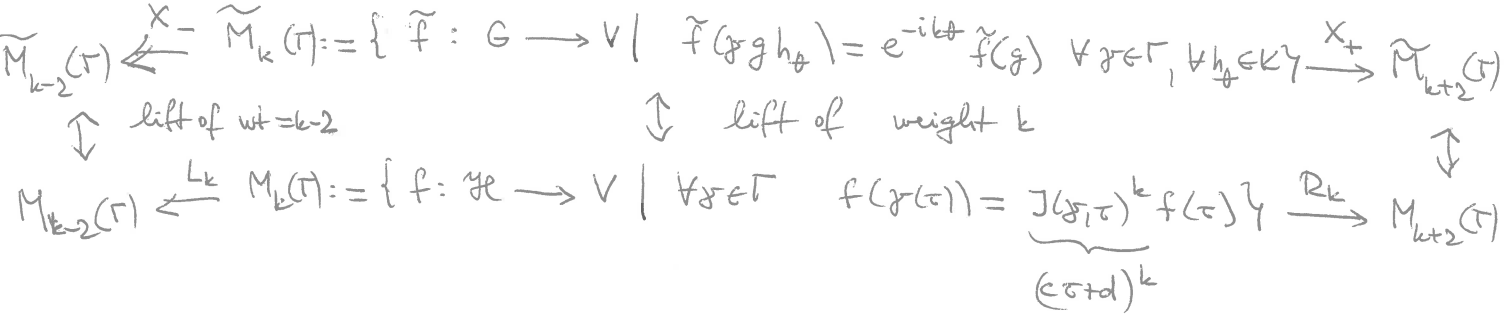 M̃_{k-2}(Γ) ↞^{X_-} M̃_k(Γ) := { f̃ : G ⟶ V | f̃(γ g h_θ) = e^{-ikθ} f̃(g) ∀γ∈Γ, ∀h_θ∈K} ⟶^{X_+} M̃_{k+2}(Γ)
↕ lift of wt = k-2 ↕ lift of weight k ↕
M_{k-2}(Γ) ⟵^{L_k} M_k(Γ) := { f : ℋ ⟶ V | ∀γ∈Γ f(γ(τ)) = J(γ,τ)^k f(τ)} ⟶^{R_k} M_{k+2}(Γ)
(cτ+d)^k